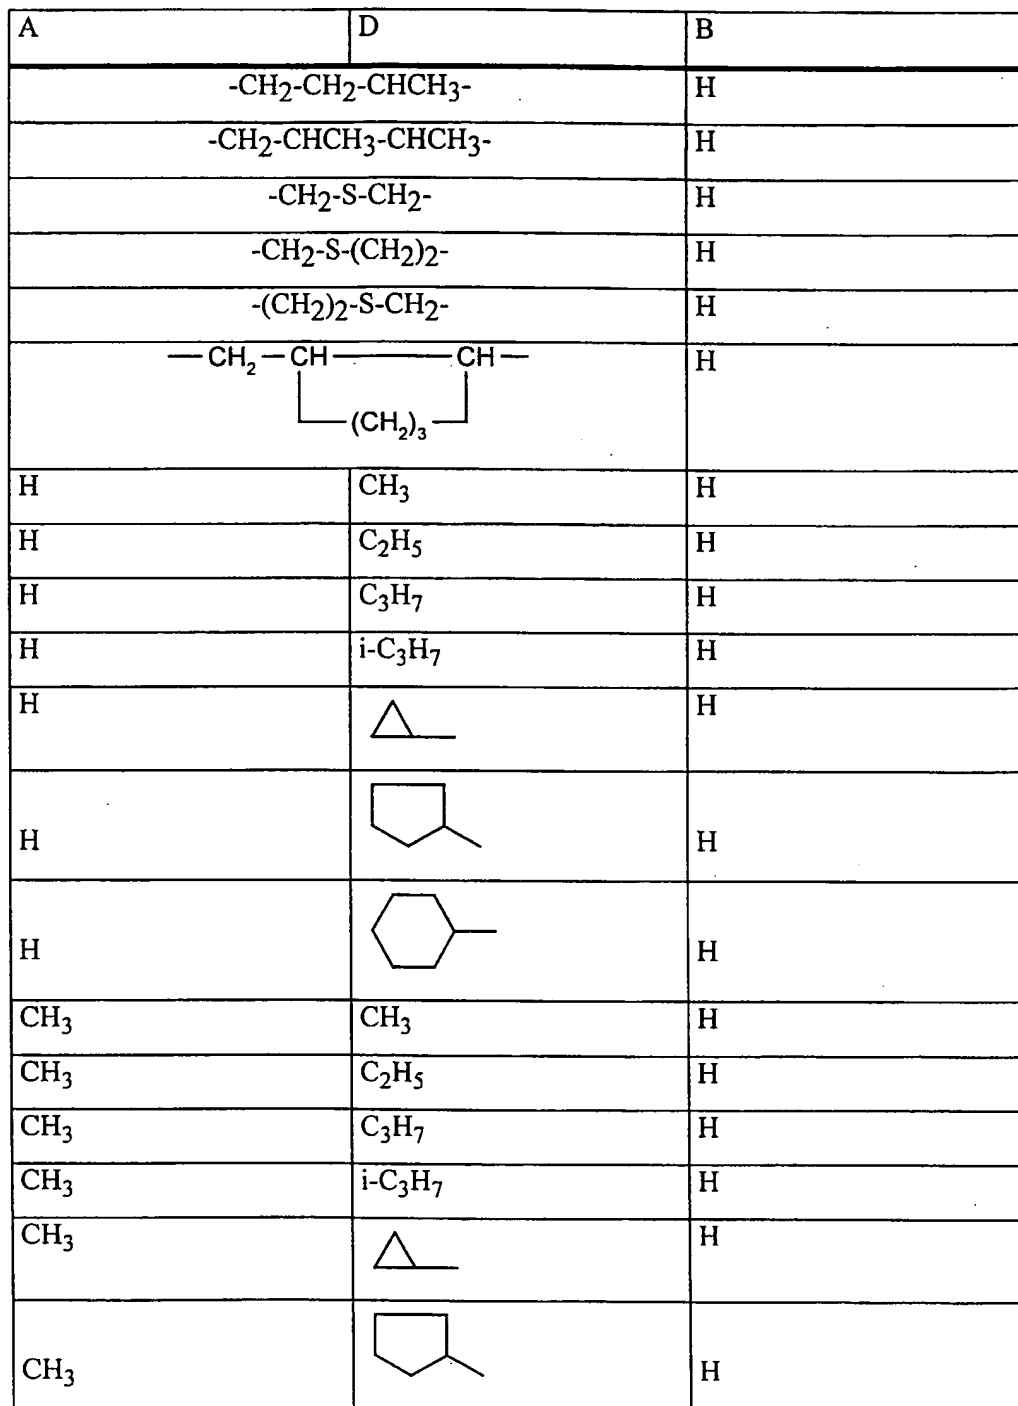 A D B
-CH2-CH2-CHCH3- H
-CH2-CHCH3-CHCH3- H
-CH2-S-CH2- H
-CH2-S-(CH2)2- H
-(CH2)2-S-CH2- H
CH2 CH CH H
(CH2)3
H CH3 H
H C2H5 H
H C3H7 H
H i-C3H7 H
H H
H H
H H
CH3 CH3 H
CH3 C2H5 H
CH3 C3H7 H
CH3 i-C3H7 H
CH3 H
CH3 H